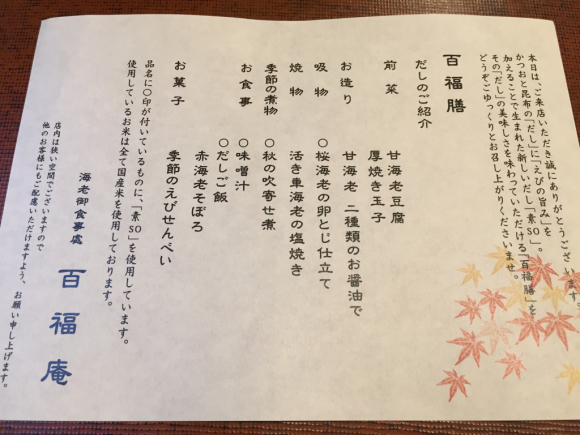 本日は、ご来店いただき誠にありがとうございます。
かつおと昆布の「だし」に「えびの旨み」を
加えることで生まれた新しいだし「素SO」。
その「だし」の美味しさを味わっていただける「百福膳」を
どうぞごゆっくりとお召し上がりくださいませ。
百福膳
だしのご紹介
前菜 甘海老豆腐
厚焼き玉子
お造り 甘海老 二種類のお醤油で
吸物 〇桜海老の卵とじ仕立て
焼物 活き車海老の塩焼き
季節の煮物 〇秋の吹寄せ煮
お食事 〇味噌汁
〇だしご飯
赤海老そぼろ
お菓子 季節のえびせんぺい
品名に〇印が付いているものに、「素SO」を使用しています。
使用しているお米は全て国産米を使用しております。
海老御食事處 百福庵
店内は狭い空間でございますので
他のお客様にもご配慮いただけますよう、お願い申し上げます。